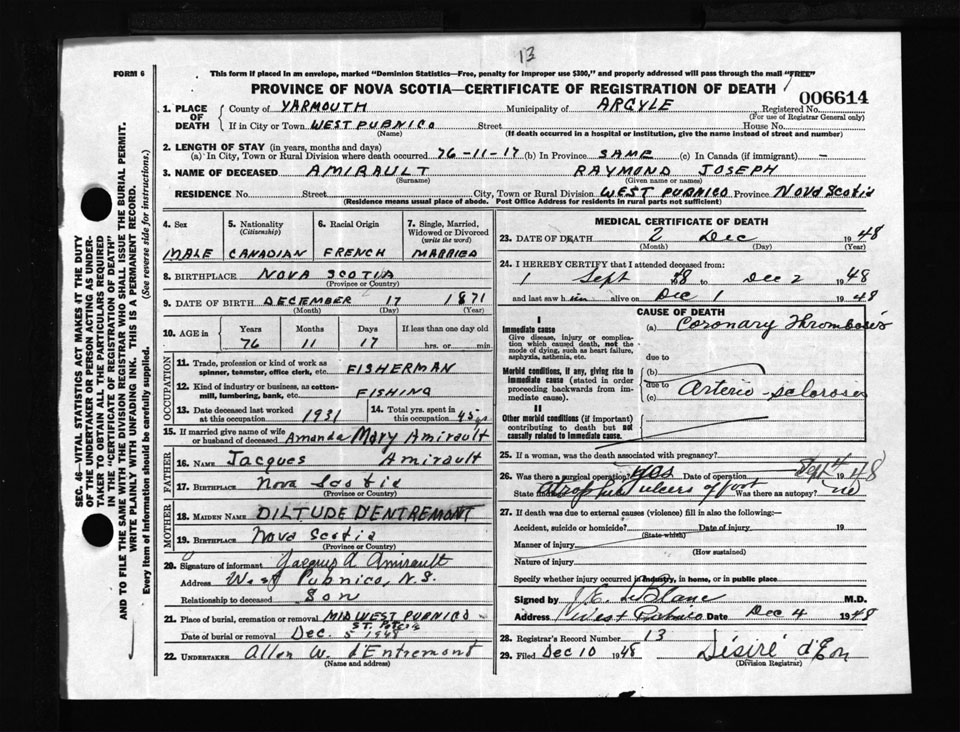 13
FORM 6
This form if placed in an envelope, marked "Dominion Statistics—Free, penalty for improper use $300," and properly addressed will pass through the mail "FREE"
PROVINCE OF NOVA SCOTIA—CERTIFICATE OF REGISTRATION OF DEATH
006614
1. PLACE OF DEATH { County of YARMOUTH Municipality of ARGYLE Registered No.
(For use of Registrar General only)
If in City or Town WEST PUBNICO Street House No.
(Name) (If death occurred in a hospital or institution, give the name instead of street and number)
2. LENGTH OF STAY (in years, months and days)
(a) In City, Town or Rural Division where death occurred 76-11-17 (b) In Province SAME (c) In Canada (if immigrant) —
3. NAME OF DECEASED AMIRAULT RAYMOND JOSEPH
(Surname) (Given name or names)
RESIDENCE No. Street City, Town or Rural Division WEST PUBNICO Province NOVA SCOTIA
(Residence means usual place of abode. Post Office Address for residents in rural parts not sufficient)
4. Sex 5. Nationality (Citizenship) 6. Racial Origin 7. Single, Married, Widowed or Divorced (write the word)
MALE CANADIAN FRENCH MARRIED
8. BIRTHPLACE NOVA SCOTIA
(Province or Country)
9. DATE OF BIRTH DECEMBER 17 1871
(Month) (Day) (Year)
10. AGE { Years Months Days If less than one day old
76 11 17 hrs. or min.
OCCUPATION
11. Trade, profession or kind of work as spinner, teamster, office clerk, etc. FISHERMAN
12. Kind of industry or business, as cotton-mill, lumbering, bank, etc. FISHING
13. Date deceased last worked at this occupation 1931 14. Total yrs. spent in this occupation 45 yrs
15. If married give name of wife or husband of deceased Amanda Mary Amirault
FATHER
16. NAME Jacques Amirault
17. BIRTHPLACE Nova Scotia
(Province or Country)
MOTHER
18. MAIDEN NAME DILTUDE D'ENTREMONT
19. BIRTHPLACE Nova Scotia
(Province or Country)
20. Signature of informant Jacques A. Amirault
Address West Pubnico, N.S.
Relationship to deceased Son
21. Place of burial, cremation or removal MIDWEST PUBNICO
Date of burial or removal Dec. 5 1948
22. UNDERTAKER Allen W. d'Entremont
(Name and address)
MEDICAL CERTIFICATE OF DEATH
23. DATE OF DEATH 2 Dec 1948
(Month) (Day) (Year)
24. I HEREBY CERTIFY that I attended deceased from:
1 Sept 48 to Dec 2 1948
and last saw him alive on Dec 1 1948
CAUSE OF DEATH
I
Immediate cause (a) Coronary Thrombosis
Give disease, injury or complication which caused death, not the mode of dying, such as heart failure, asphyxia, asthenia, etc.
due to
Morbid conditions, if any, giving rise to immediate cause (stated in order proceeding backwards from immediate cause).
(b)
due to
(c) Arterio-sclerosis
II
Other morbid conditions (if important) contributing to death but not causally related to immediate cause.
25. If a woman, was the death associated with pregnancy?
26. Was there a surgical operation? yes Date of operation Sept 4 1948
State findings atrophic ulcers of foot Was there an autopsy? no
27. If death was due to external causes (violence) fill in also the following:—
Accident, suicide or homicide? Date of injury 19
(State which)
Manner of injury
(How sustained)
Nature of injury
Specify whether injury occurred in industry, in home, or in public place
Signed by LeBlanc M.D.
Address West Pubnico Date Dec 4 1948
28. Registrar's Record Number 13
29. Filed Dec 10 1948 Désiré d'Eon
(Division Registrar)
SEC. 46—VITAL STATISTICS ACT MAKES IT THE DUTY
OF THE UNDERTAKER OR PERSON ACTING AS UNDER-
TAKER TO OBTAIN ALL THE PARTICULARS REQUIRED
IN THE "CERTIFICATE OF REGISTRATION OF DEATH"
AND TO FILE THE SAME WITH THE DIVISION REGISTRAR WHO SHALL ISSUE THE BURIAL PERMIT.
WRITE PLAINLY WITH UNFADING INK. THIS IS A PERMANENT RECORD.
Every item of Information should be carefully supplied. (See reverse side for instructions.)